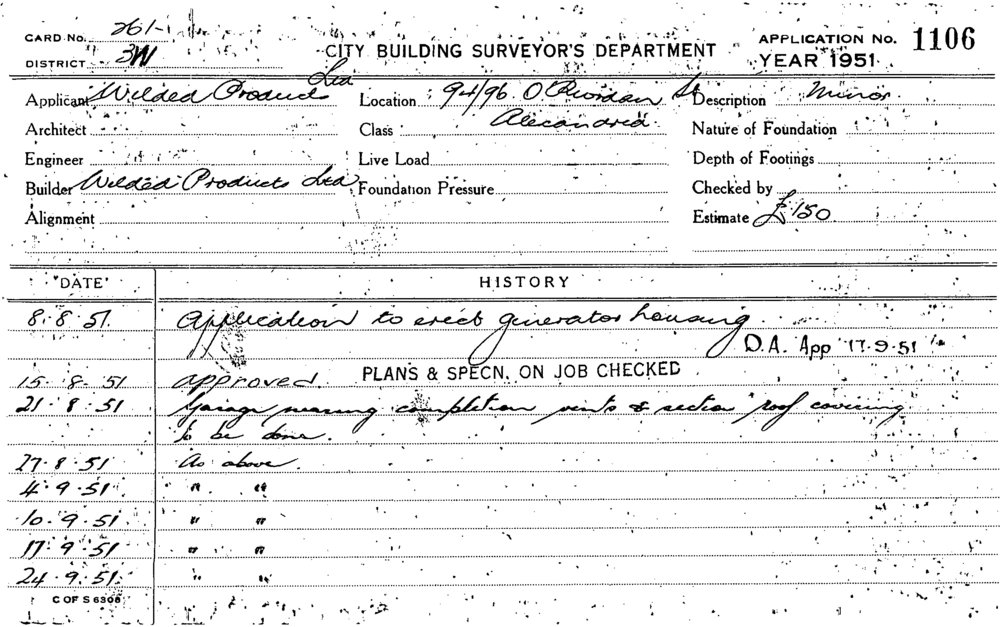 CARD No. 261-
CITY BUILDING SURVEYOR'S DEPARTMENT
APPLICATION No. 1106
DISTRICT 3W
YEAR 1951
Applicant Welded Products Ltd
Location 94/96 O'Riordan St
Alexandria
Description Minor
Architect
Class
Nature of Foundation
Engineer
Live Load
Depth of Footings
Builder Welded Products Ltd
Foundation Pressure
Checked by
Alignment
Estimate £150
DATE
HISTORY
8.8.51 Application to erect generator housing.
D.A. App 17.9.51
15.8.51 approved. PLANS & SPECN. ON JOB CHECKED
21.8.51 Garage nearing completion vents & section roof covering
to be done.
27.8.51 As above.
4.9.51 " "
10.9.51 " "
17.9.51 " "
24.9.51 " "
C OF S 6306